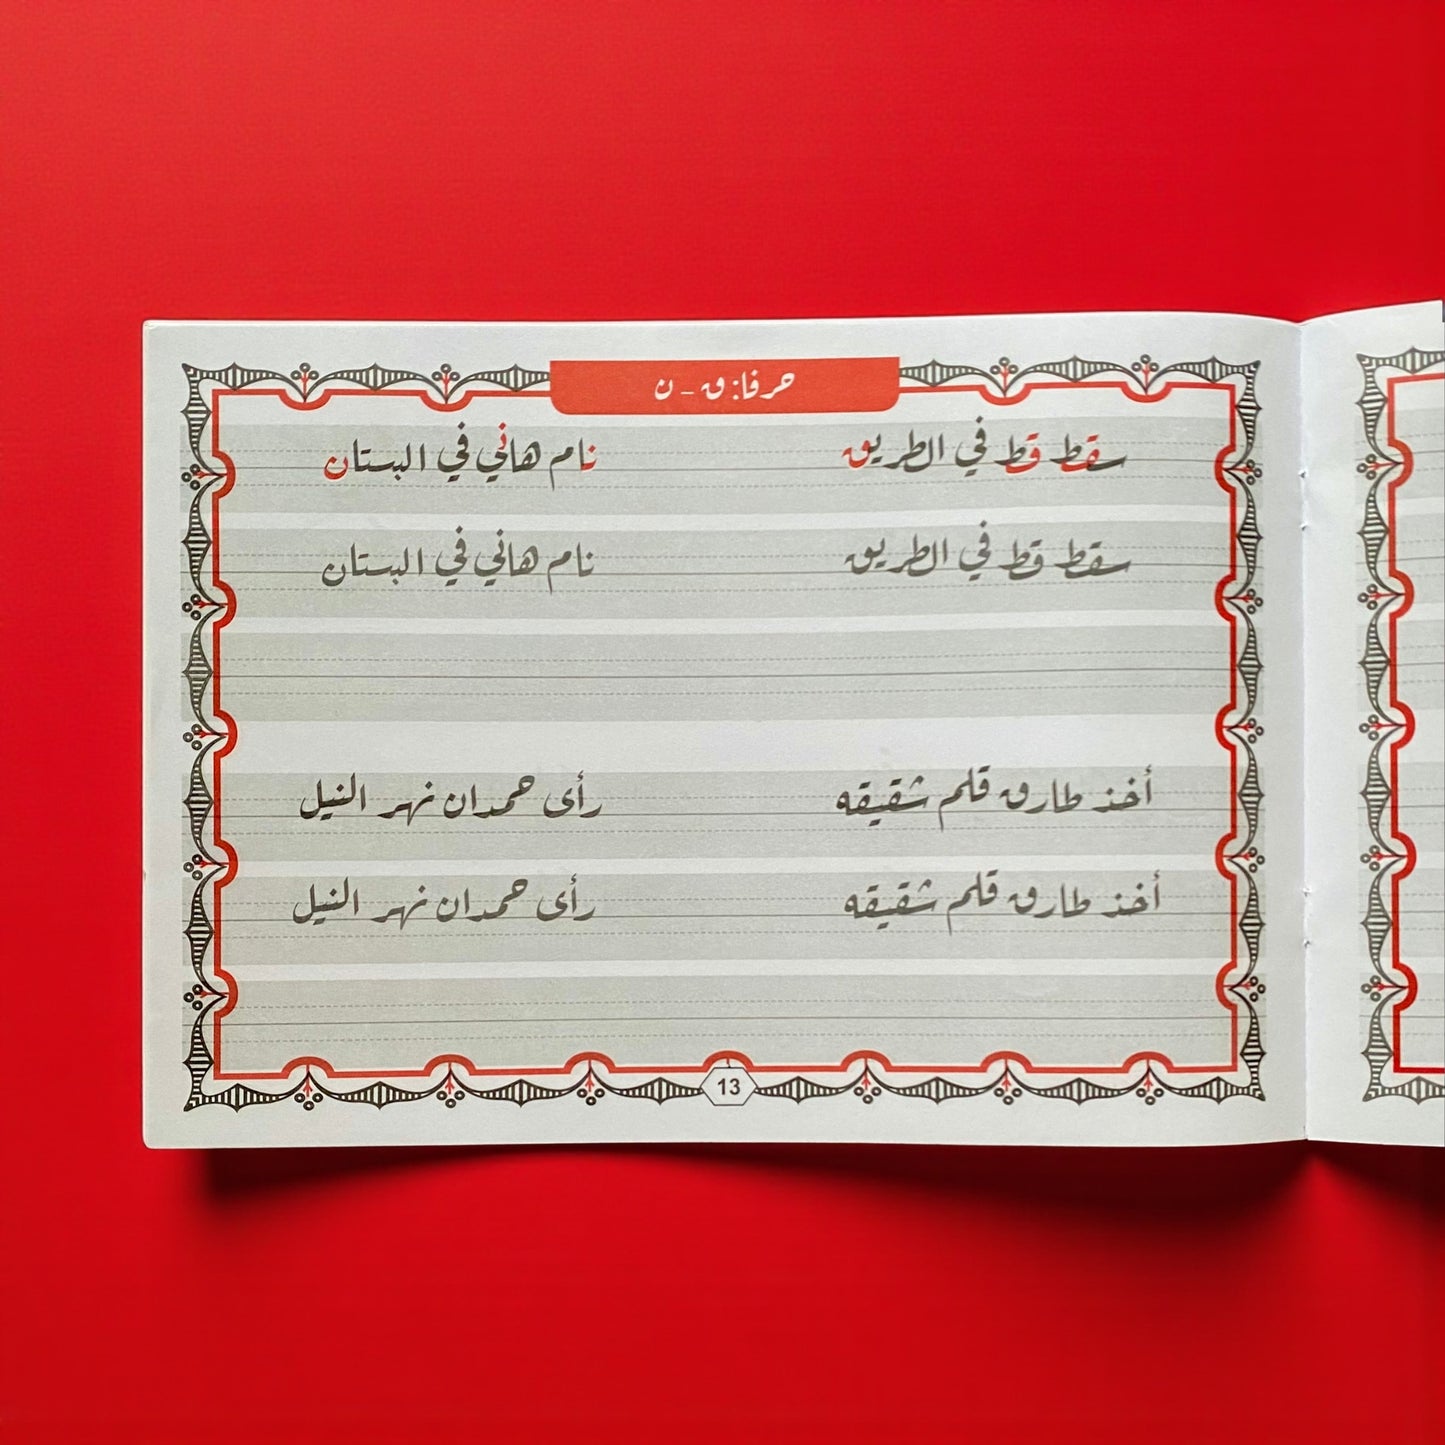 حرفا: ق - ن
سقط قط في الطريق نام هاني في البستان
سقط قط في الطريق نام هاني في البستان
أخذ طارق قلم شقيقه رأى حمدان نهر النيل
أخذ طارق قلم شقيقه رأى حمدان نهر النيل
13